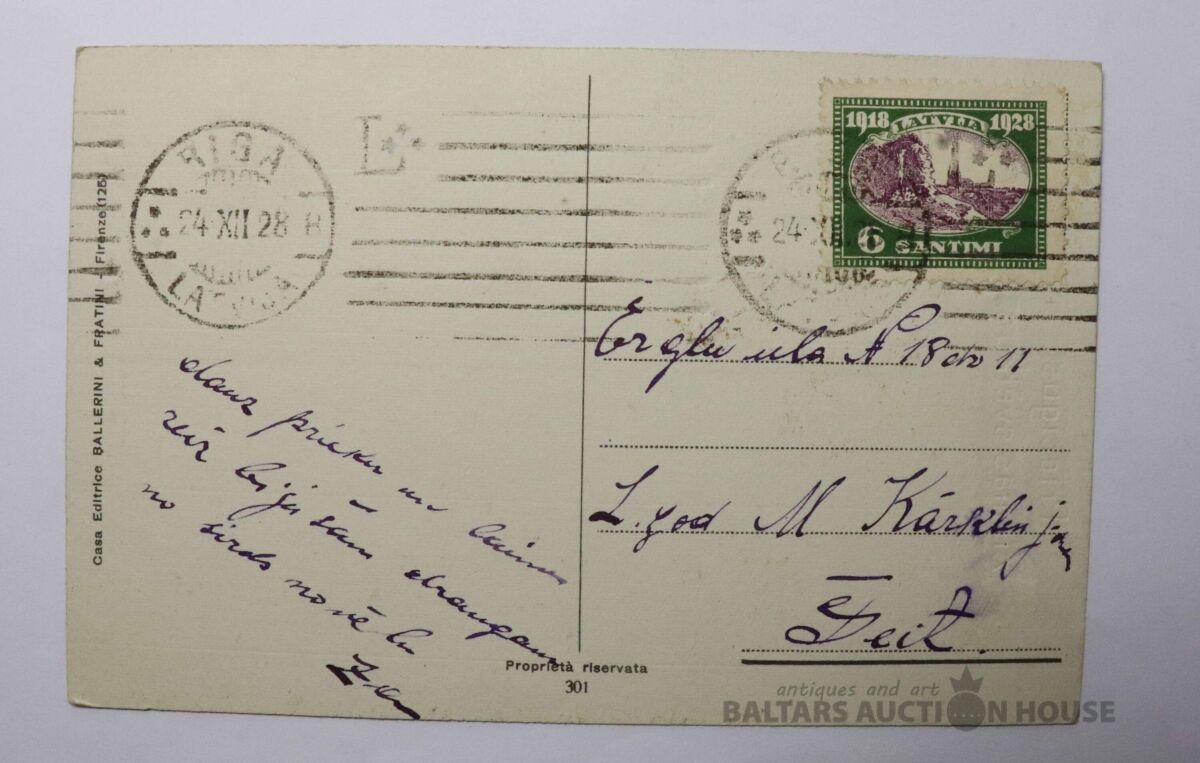 RIGA
24·XII 28 B
LATVIJA
L
1918 LATVIJA 1928
6 SANTIMI
Casa Editrice BALLERINI & FRATINI Firenze (125)
Erglu iela N 18 dz 11
L. god M Kārkliņ j-
Teit.
daudz prieku un laimes
bijušam draugam
no sirds novēlu
Proprietà riservata
301
antiques and art
BALTARS AUCTION HOUSE